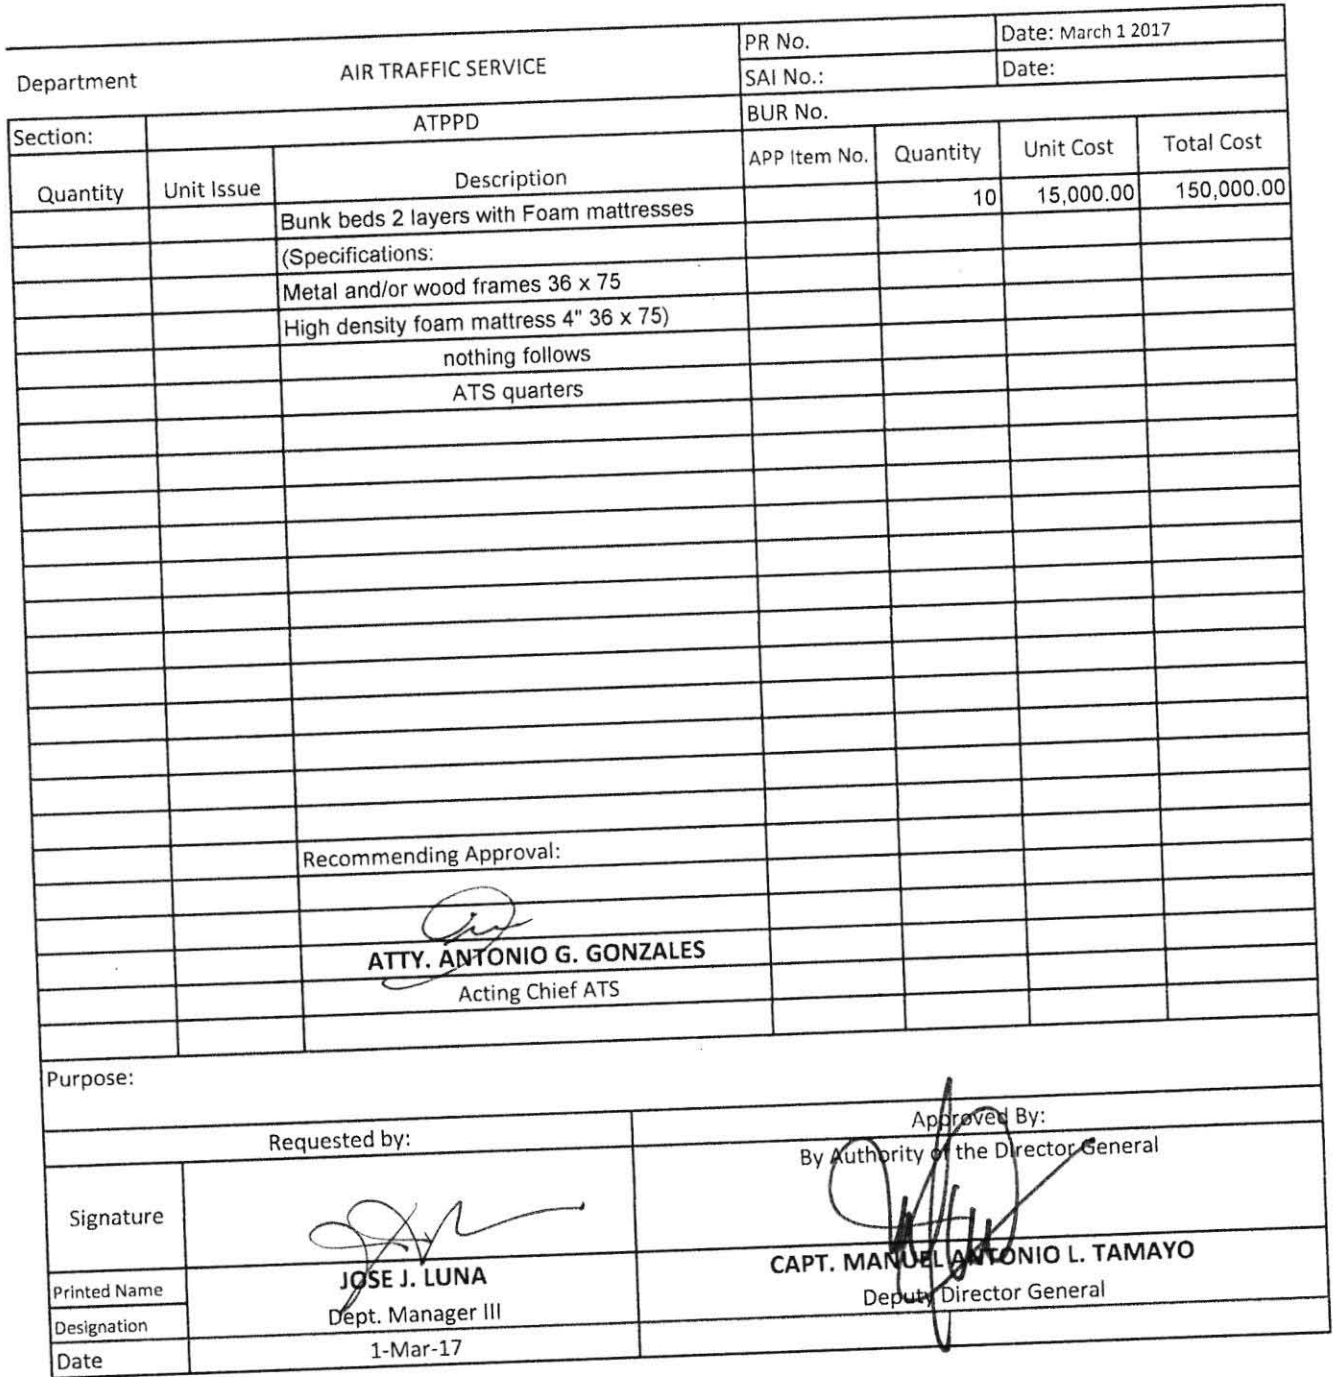 Department AIR TRAFFIC SERVICE PR No. Date: March 1 2017
SAI No.: Date:
Section: ATPPD BUR No.
Quantity Unit Issue Description APP Item No. Quantity Unit Cost Total Cost
Bunk beds 2 layers with Foam mattresses 10 15,000.00 150,000.00
(Specifications:
Metal and/or wood frames 36 x 75
High density foam mattress 4" 36 x 75)
nothing follows
ATS quarters
Recommending Approval:
ATTY. ANTONIO G. GONZALES
Acting Chief ATS
Purpose:
Requested by: Approved By:
By Authority of the Director General
Signature
Printed Name JOSE J. LUNA CAPT. MANUEL ANTONIO L. TAMAYO
Designation Dept. Manager III Deputy Director General
Date 1-Mar-17